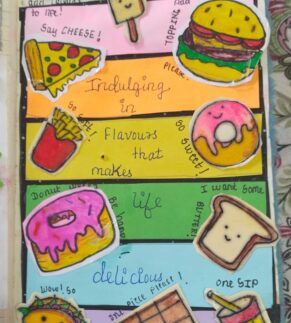 to life!
Add
TOPPING
Please!
Say CHEESE!
Indulging
in
So soft!
Flavours
that
makes
So sweet!
Donut worry
Be happy
life
I want some
BUTTER!
delicious
Wow! So
one piece please!
one SIP